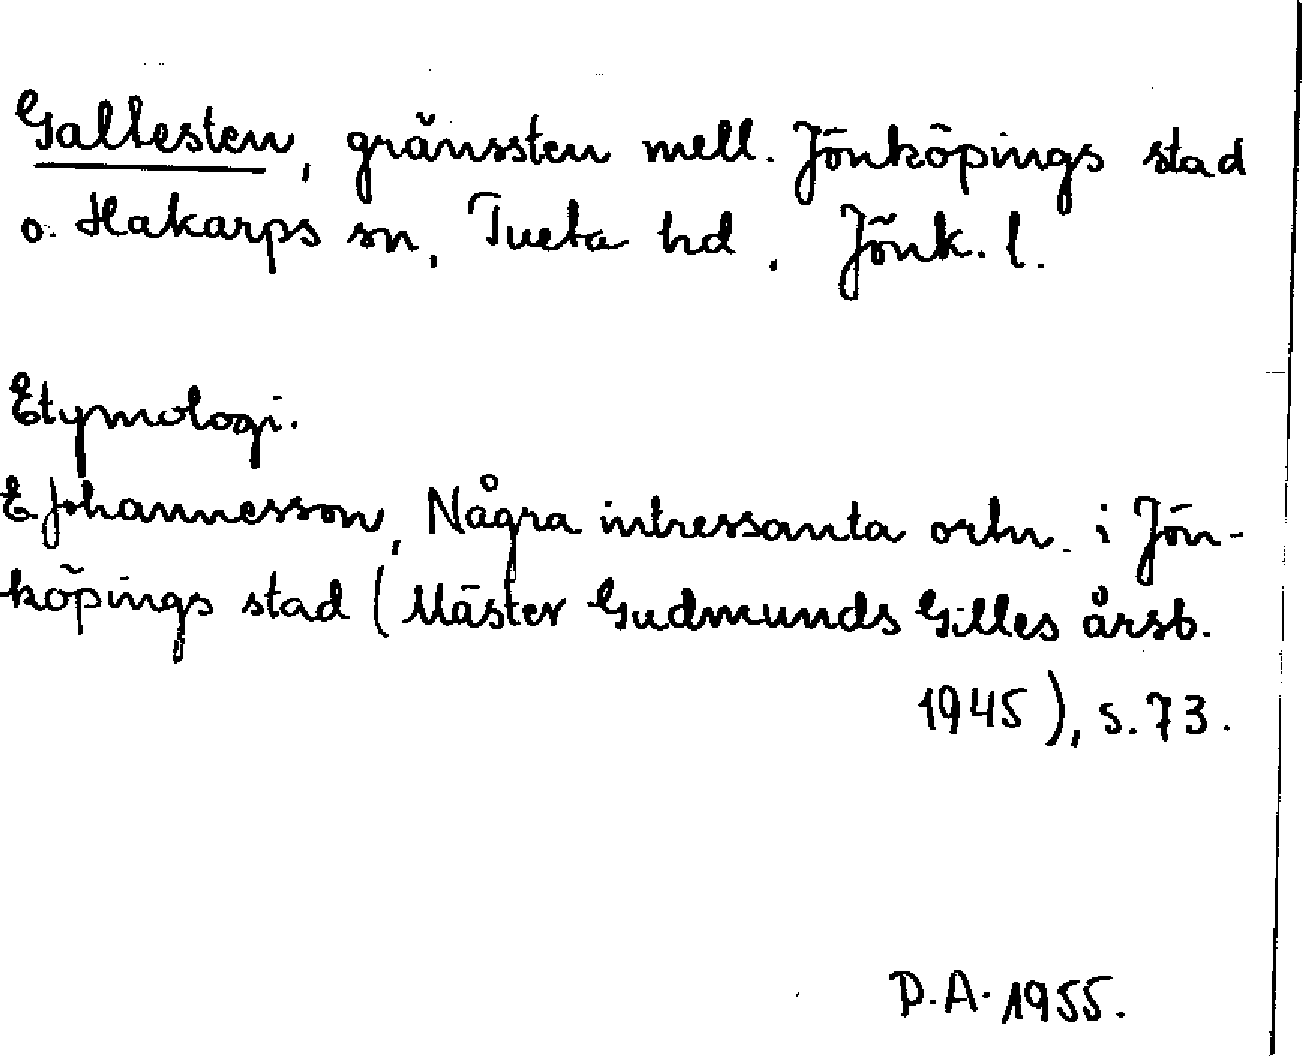 Galtesten, gränssten mell. Jönköpings stad
o. Hakarps sn, Tveta hd, Jönk. l.
Etymologi.
E Johannesson, Några intressanta ortn. i Jön-
köpings stad (Mäster Gudmunds Gilles årsb.
1945), s. 73.
D.A. 1955.